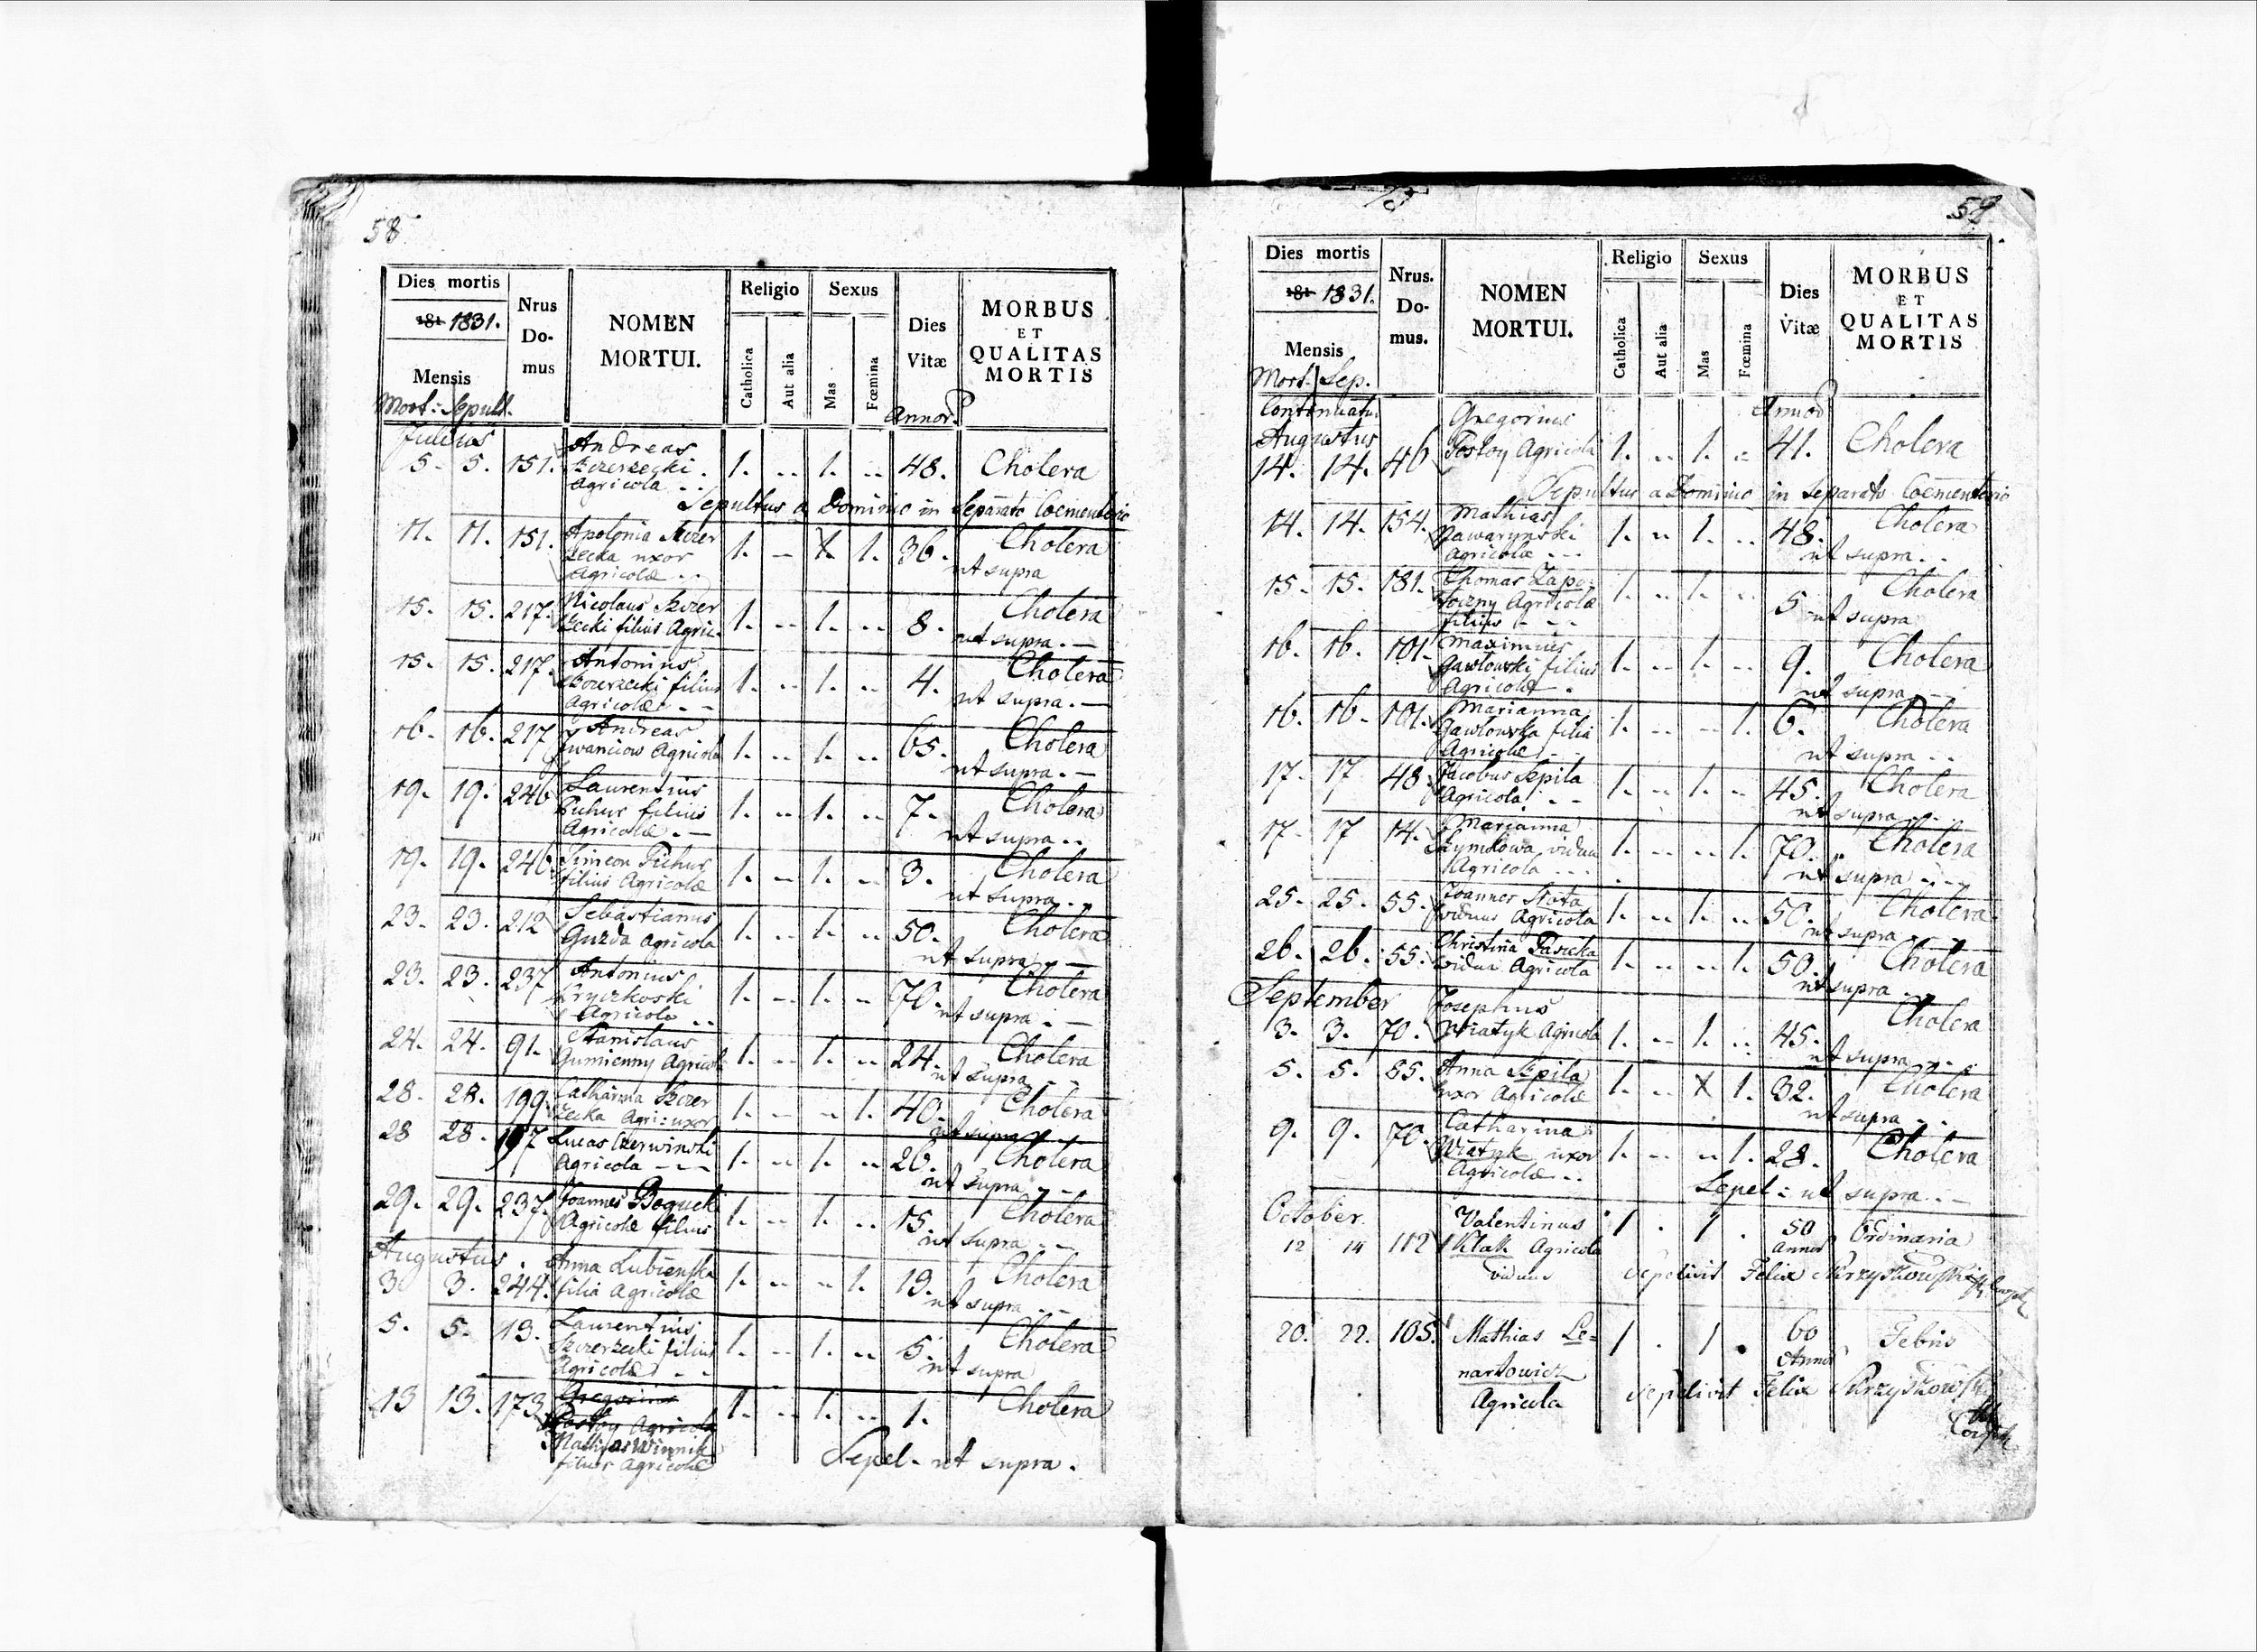 58
Dies mortis
181 1831.
Mensis
Mort: Sepult.
Nrus Do- mus
NOMEN MORTUI.
Religio
Catholica
Aut alia
Sexus
Mas
Fœmina
Dies Vitæ
Annor.
MORBUS ET QUALITAS MORTIS
Julius
5. 5. 151. Andreas Szczerzecki Agricola 1. .. 1. .. 48. Cholera
Sepultus a Dominio in Separato Coementerio
11. 11. 151. Apolonia Szczerzecka uxor Agricolæ 1. - 1. 1. 36. Cholera
ut supra
15. 15. 217. Nicolaus Szczerzecki filius Agric. 1. .. 1. .. 8. Cholera
ut supra.
15. 15. 217. Antonius Szczerzecki filius Agricolæ 1. .. 1. .. 4. Cholera
ut supra.
16. 16. 217 Andreas Iwanciow Agricola 1. .. 1. .. 65. Cholera
ut supra.
19. 19. 246 Laurentius Pichur filius Agricolæ 1. .. 1. .. 7. Cholera
ut supra..
19. 19. 246 Simeon Pichur filius Agricolæ 1. .. 1. .. 3. Cholera
ut supra..
23. 23. 212 Sebastianus Guzda Agricola 1. .. 1. .. 50. Cholera
ut supra
23. 23. 237 Antonius Kryczkoski Agricola .. 1. .. 1. .. 70. Cholera
ut supra.
24. 24. 91. Stanislaus Gumienny Agricola 1. .. 1. .. 24. Cholera
ut supra
28. 28. 199 Catharina Szczerzecka Agri: uxor 1. .. .. 1. 40. Cholera
ut supra
28 28. 197 Lucas Czerwinski Agricola 1. .. 1. .. 26. Cholera
ut supra
29. 29. 237. Joannes Boguck Agricolæ filius 1. .. 1. .. 15. Cholera
ut supra
Augustus.
3 3. 244. Anna Lubienska filia Agricolæ 1. .. .. 1. 19. Cholera
ut supra
5. 5. 13. Laurentius Szczerzecki filius Agricolæ 1. .. 1. .. 5. Cholera
ut supra
13 13. 173 Gregorius Postoy Agricola
Mathias Winnik filius Agricolæ 1. .. 1. .. 1. Cholera
Sepel. ut supra.
59
Dies mortis
181 1831.
Mensis
Mort. Sep.
Nrus. Do- mus.
NOMEN MORTUI.
Religio
Catholica
Aut alia
Sexus
Mas
Fœmina
Dies Vitæ
Annor
MORBUS ET QUALITAS MORTIS
Continuatu.
Augustus
14. 14. 46 Gregorius Postoy Agricola 1. .. 1. .. 41. Cholera
Sepultus a Dominio in separato Coementerio
14. 14. 154. Mathias Nawarynski Agricola 1. .. 1. .. 48. Cholera
ut supra..
15. 15. 181. Thomas Zapotoczny Agricolæ filius 1. .. 1. .. 5 Cholera
ut supra
16. 16. 101. Maximus Gawlowski filius Agricolæ 1. .. 1. .. 9. Cholera
ut supra
16. 16. 101. Marianna Gawlowska filia Agricolæ 1. .. .. 1. 6. Cholera
ut supra ..
17. 17 48. Jacobus Szpila Agricola 1. .. 1. .. 45. Cholera
ut supra
17. 17 14. Marianna vidua Agricola 1. .. .. 1. 70. Cholera
ut supra
25. 25. 55. Joannes Stota viduus Agricola 1. .. 1. .. 50. Cholera
ut supra
26. 26. 55. Christina Pasicka vidua Agricola 1. .. .. 1. 50. Cholera
ut supra
September
3. 3. 70. Josephus Wiatyk Agricola 1. .. 1. .. 45. Cholera
ut supra
5. 5. 85. Anna Szpila uxor Agricolæ 1. .. X 1. 32. Cholera
ut supra
9. 9. 70. Catharina Wiatyk uxor Agricolæ 1. .. .. 1. 28. Cholera
Sepel: ut supra
October.
12 14 112 Valentinus Klak Agricola viduus 1 . 1 . 50 Annor Ordinaria
Sepelivit Felix
20. 22. 105. Mathias Lenartowicz Agricola 1 . 1 . 60 Annor Febris
Sepelivit Felix